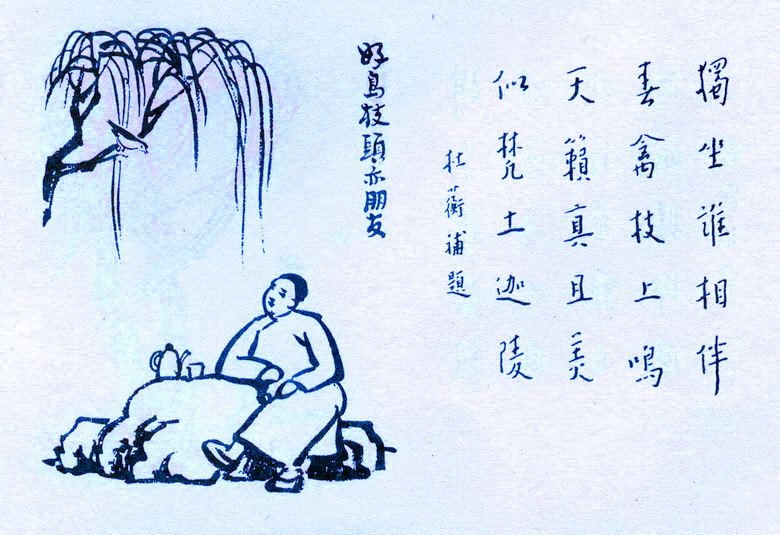 獨坐誰相伴
春禽枝上鳴
天籟真且美
似梵土迦陵
杜蘅補題
好鳥枝頭亦朋友